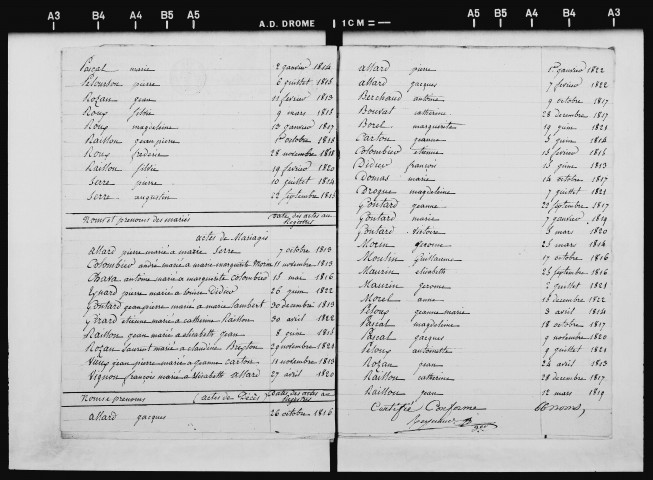 A3 B4 A4 B5 A5 A.D. DROME 1 CM A5 B5 A4 B4 A3
Pascal marie 2 janvier 1814
Pelourson pierre 6 juillet 1815
Rozan jean 11 fevrier 1813
Rous felix 9 mars 1815
Rous magdeleine 13 janvier 1817
Raillon jean pierre 1er octobre 1818
Rous frederic 28 novembre 1818
Raillon felix 19 fevrier 1820
Serre pierre 10 juillet 1814
Serre augustin 22 septembre 1815
Noms et prenoms des mariés Dates des actes au Registres
actes de Mariages
allard pierre marié a marie Serre 7 octobre 1813
Colombier andré marié a marie marguerite morin 11 novembre 1813
Chava antoine marié a marguerite Colombier 15 mai 1816
Eynard pierre marié a louise Didier 26 juin 1822
Gontard jean pierre marié a marie Lambert 30 decembre 1813
Girard etienne marié a catherine Raillon 30 avril 1822
Raillon jean marié a elisabeth jean 8 juin 1815
Rozan laurent marié a claudine 29 novembre 1821
jean pierre marié a jeanne carton 11 novembre 1813
Vignon françois marié a Elisabeth allard 27 avril 1820
Noms et prenoms (actes de Décès) Dates des actes au Registre
allard jacques 26 octobre 1816
allard pierre 1er janvier 1822
allard jacques 7 fevrier 1822
Berchaud antoine 9 octobre 1817
Bouvat catherine 28 decembre 1817
Borel marguerite 19 juin 1821
Carton jeanne 3 juin 1814
Colombier etienne 13 fevrier 1815
Didier françois 15 juin 1813
Domas marie 14 octobre 1817
Drogue magdeleine 7 juillet 1821
Gontard jeanne 22 septembre 1817
Gontard marie 7 janvier 1819
Gontard victoire 8 mars 1820
Morin jerome 25 mars 1814
Moulin Guillaume 17 octobre 1816
Maurin elisabeth 25 septembre 1816
Maurin jerome 2 juillet 1821
Morel anne 18 decembre 1822
Plous jeanne marie 3 avril 1814
Pascal magdeleine 18 octobre 1817
Pascal jacques 9 novembre 1820
Plous antoinette 9 juillet 1821
Rozan jean 24 avril 1813
Raillon catherine 28 decembre 1817
Raillon jean 12 mars 1819
Certifié Conforme